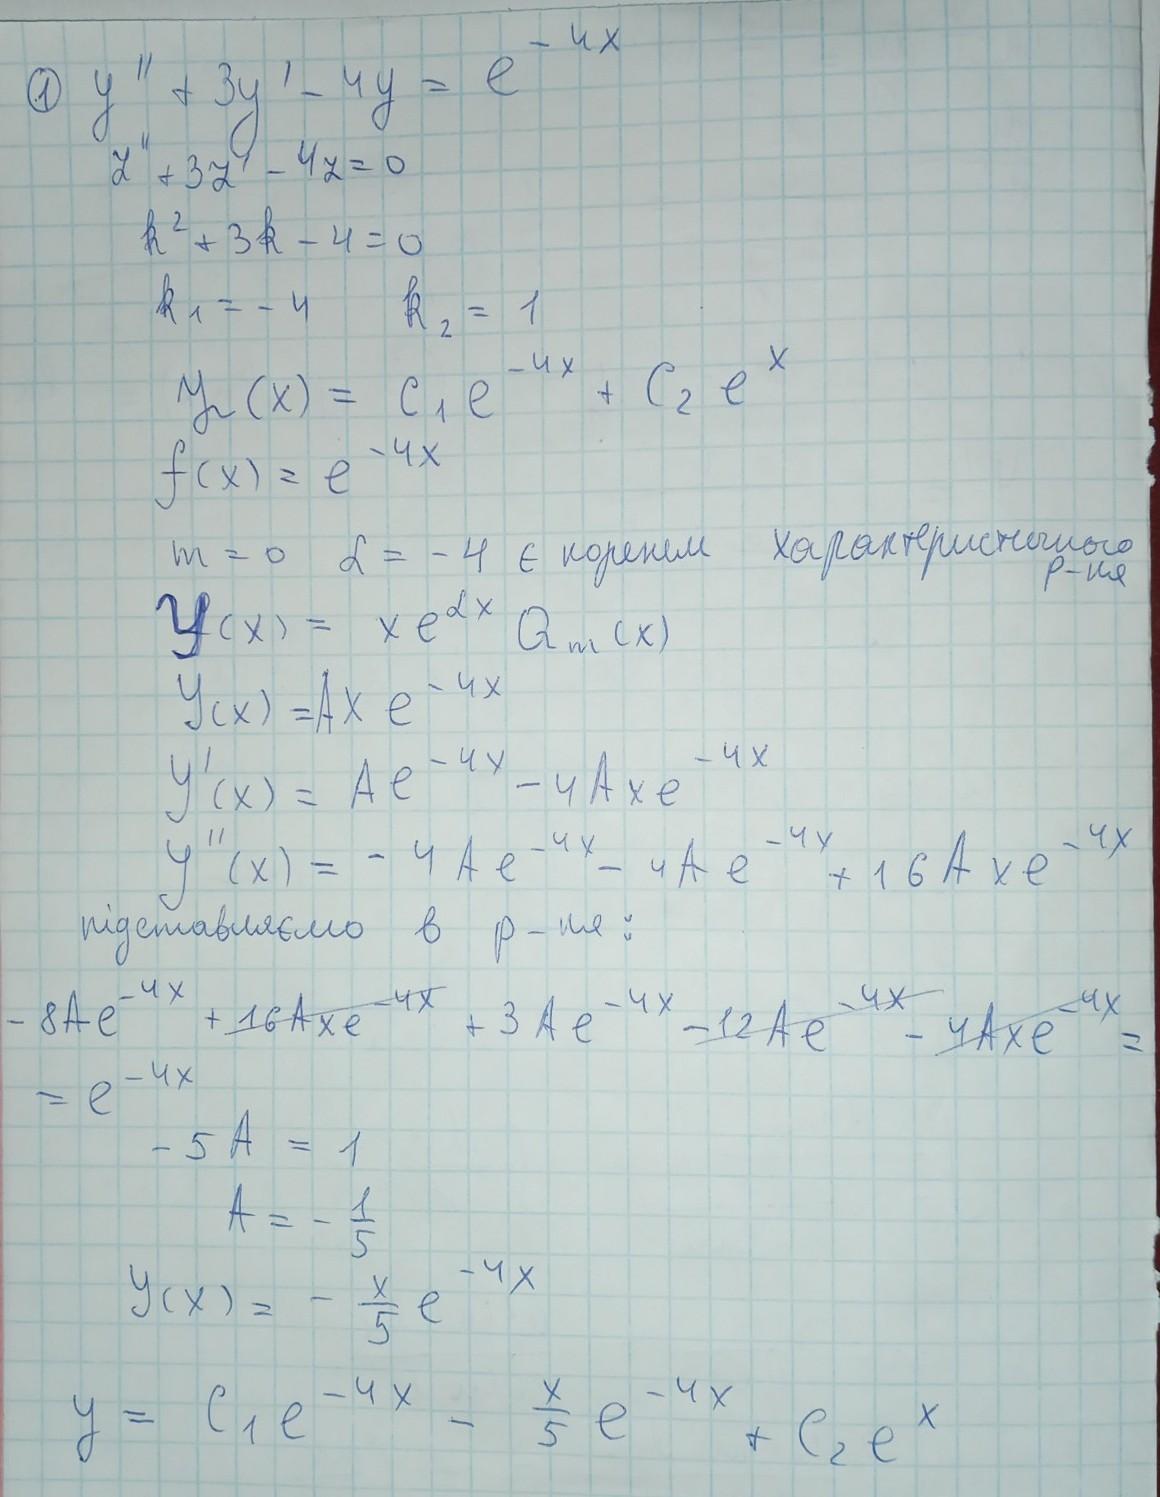 ① y'' + 3y' - 4y = e^{-4x}
z'' + 3z' - 4z = 0
k² + 3k - 4 = 0
k₁ = -4 k₂ = 1
y (x) = C₁e^{-4x} + C₂e^{x}
f(x) = e^{-4x}
m = 0 α = -4 є коренем характеристичного р-ня
Y(x) = xe^{αx} Qₘ(x)
Y(x) = Ax e^{-4x}
Y'(x) = Ae^{-4x} - 4Axe^{-4x}
Y''(x) = -4Ae^{-4x} - 4Ae^{-4x} + 16Axe^{-4x}
підставляємо в р-ня:
-8Ae^{-4x} + 16Axe^{-4x} + 3Ae^{-4x} - 12Ae^{-4x} - 4Axe^{-4x} =
= e^{-4x}
-5A = 1
A = -1/5
Y(x) = -x/5 e^{-4x}
y = C₁e^{-4x} - x/5 e^{-4x} + C₂e^{x}